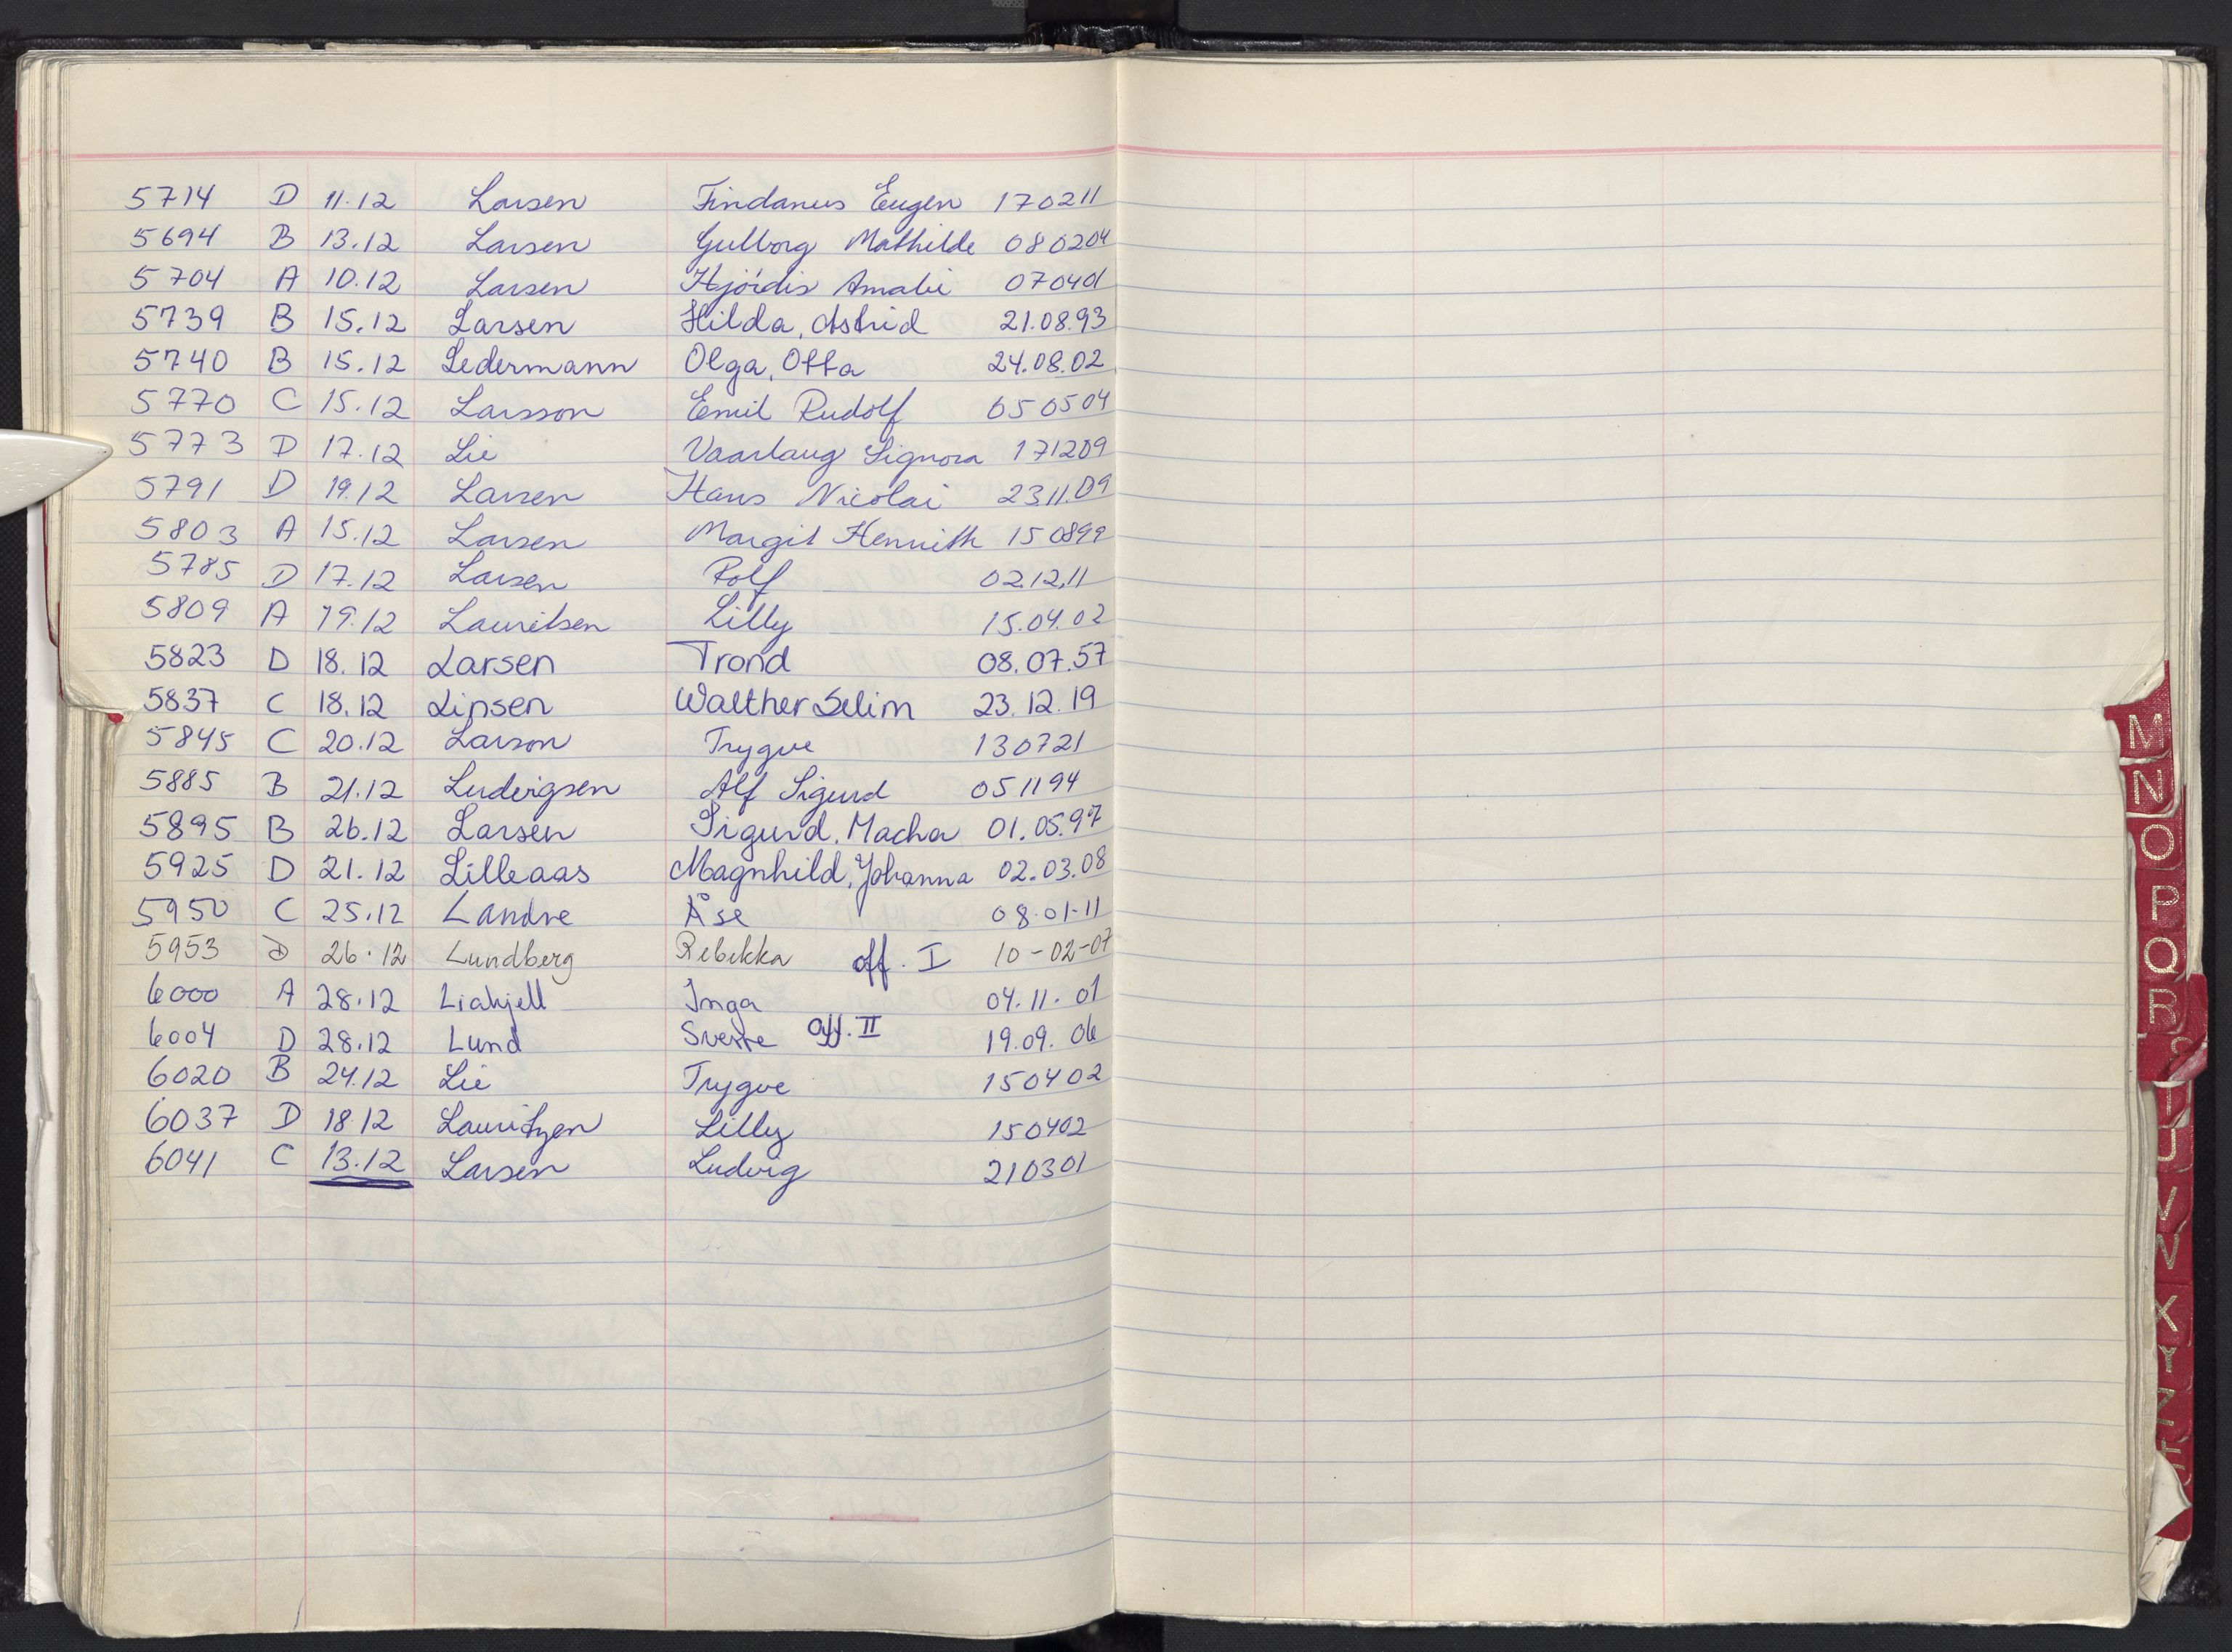 5714 D 11.12 Larsen Findanus Eugen 170211
5694 B 13.12 Larsen Gulborg Mathilde 080204
5704 A 10.12 Larsen Hjördis Amalie 070401
5739 B 15.12 Larsen Hilda, Astrid 21.08.93
5740 B 15.12 Ledermann Olga, Otta 24.08.02
5770 C 15.12 Larsson Emil Rudolf 050504
5773 D 17.12 Lie Vaarlaug Signora 171209
5791 D 19.12 Larsen Hans Nicolai 2311.09
5803 A 15.12 Larsen Margit Henrieth 150899
5785 D 17.12 Larsen Rolf 02.12.11
5809 A 19.12 Lauritsen Lilly 15.04.02
5823 D 18.12 Larsen Trond 08.07.57
5837 C 18.12 Linsen Walther Selim 23.12.19
5845 C 20.12 Larson Trygve 130721
5885 B 21.12 Ludvigsen Alf Sigurd 051194
5895 B 26.12 Larsen Sigurd, Macha 01.05.97
5925 D 21.12 Lilleaas Magnhild, Johanna 02.03.08
5950 C 25.12 Landre Åse 08.01-11
5953 D 26.12 Lundberg Rebekka off. I 10-02-07
6000 A 28.12 Liahjell Inga 04.11.01
6004 D 28.12 Lund Sverre off. II 19.09.06
6020 B 24.12 Lie Trygve 150402
6037 D 18.12 Lauritzen Lilly 150402
6041 C 13.12 Larsen Ludvig 210301
M
N
O
P
Q
R
T
U
V
W
X
Y
Z